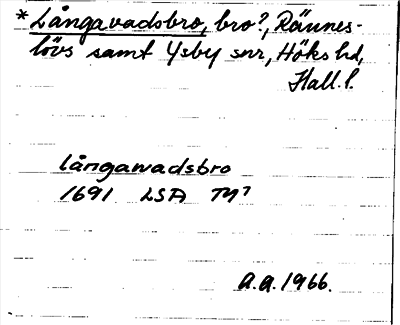 * Långavadsbro, bro?, Rännes-
lövs samt Ysby snr, Höks hd,
Hall. l.
långawadsbro
1691 LSA TM7
A.A. 1966.